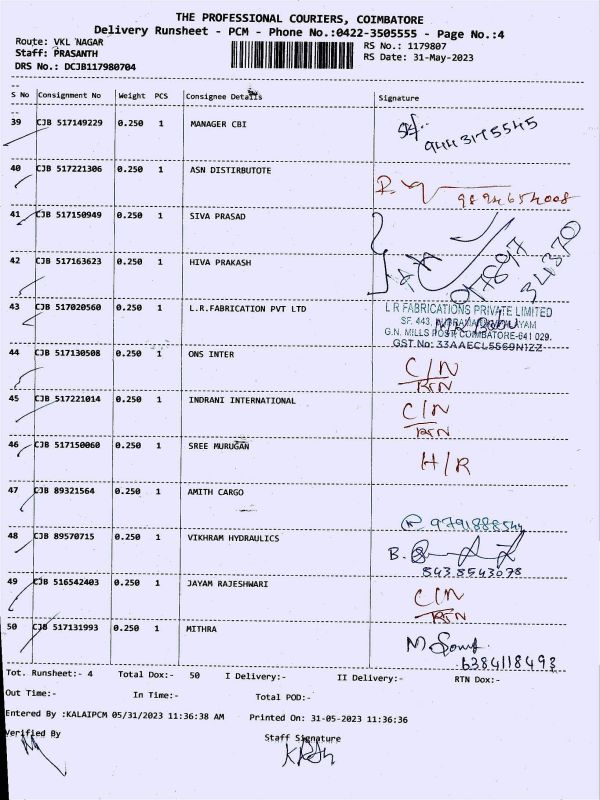 THE PROFESSIONAL COURIERS, COIMBATORE
Delivery Runsheet - PCM - Phone No.:0422-3505555 - Page No.:4
Route: VKL NAGAR
Staff: PRASANTH
DRS No.: DCJB117980704
RS No.: 1179807
RS Date: 31-May-2023
S No Consignment No Weight PCS Consignee Details Signature
39 CJB 517149229 0.250 1 MANAGER CBI
9443175545
40 CJB 517221306 0.250 1 ASN DISTIRBUTOTE
9894654008
41 CJB 517150949 0.250 1 SIVA PRASAD
42 CJB 517163623 0.250 1 HIVA PRAKASH
43 CJB 517020560 0.250 1 L.R.FABRICATION PVT LTD
L R FABRICATIONS PRIVATE LIMITED
SF. 443,
G.N. MILLS POST, COIMBATORE-641 029.
GST.No: 33AAECL5569N1ZZ
44 CJB 517130508 0.250 1 ONS INTER
C/N
RTN
45 CJB 517221014 0.250 1 INDRANI INTERNATIONAL
C/N
RTN
46 CJB 517150060 0.250 1 SREE MURUGAN
H/R
47 CJB 89321564 0.250 1 AMITH CARGO
48 CJB 89570715 0.250 1 VIKHRAM HYDRAULICS
B.
8438543078
49 CJB 516542403 0.250 1 JAYAM RAJESHWARI
C/N
RTN
50 CJB 517131993 0.250 1 MITHRA
6384118493
Tot. Runsheet:- 4 Total Dox:- 50 I Delivery:- II Delivery:- RTN Dox:-
Out Time:- In Time:- Total POD:-
Entered By :KALAIPCM 05/31/2023 11:36:38 AM Printed On: 31-05-2023 11:36:36
Verified By Staff Signature